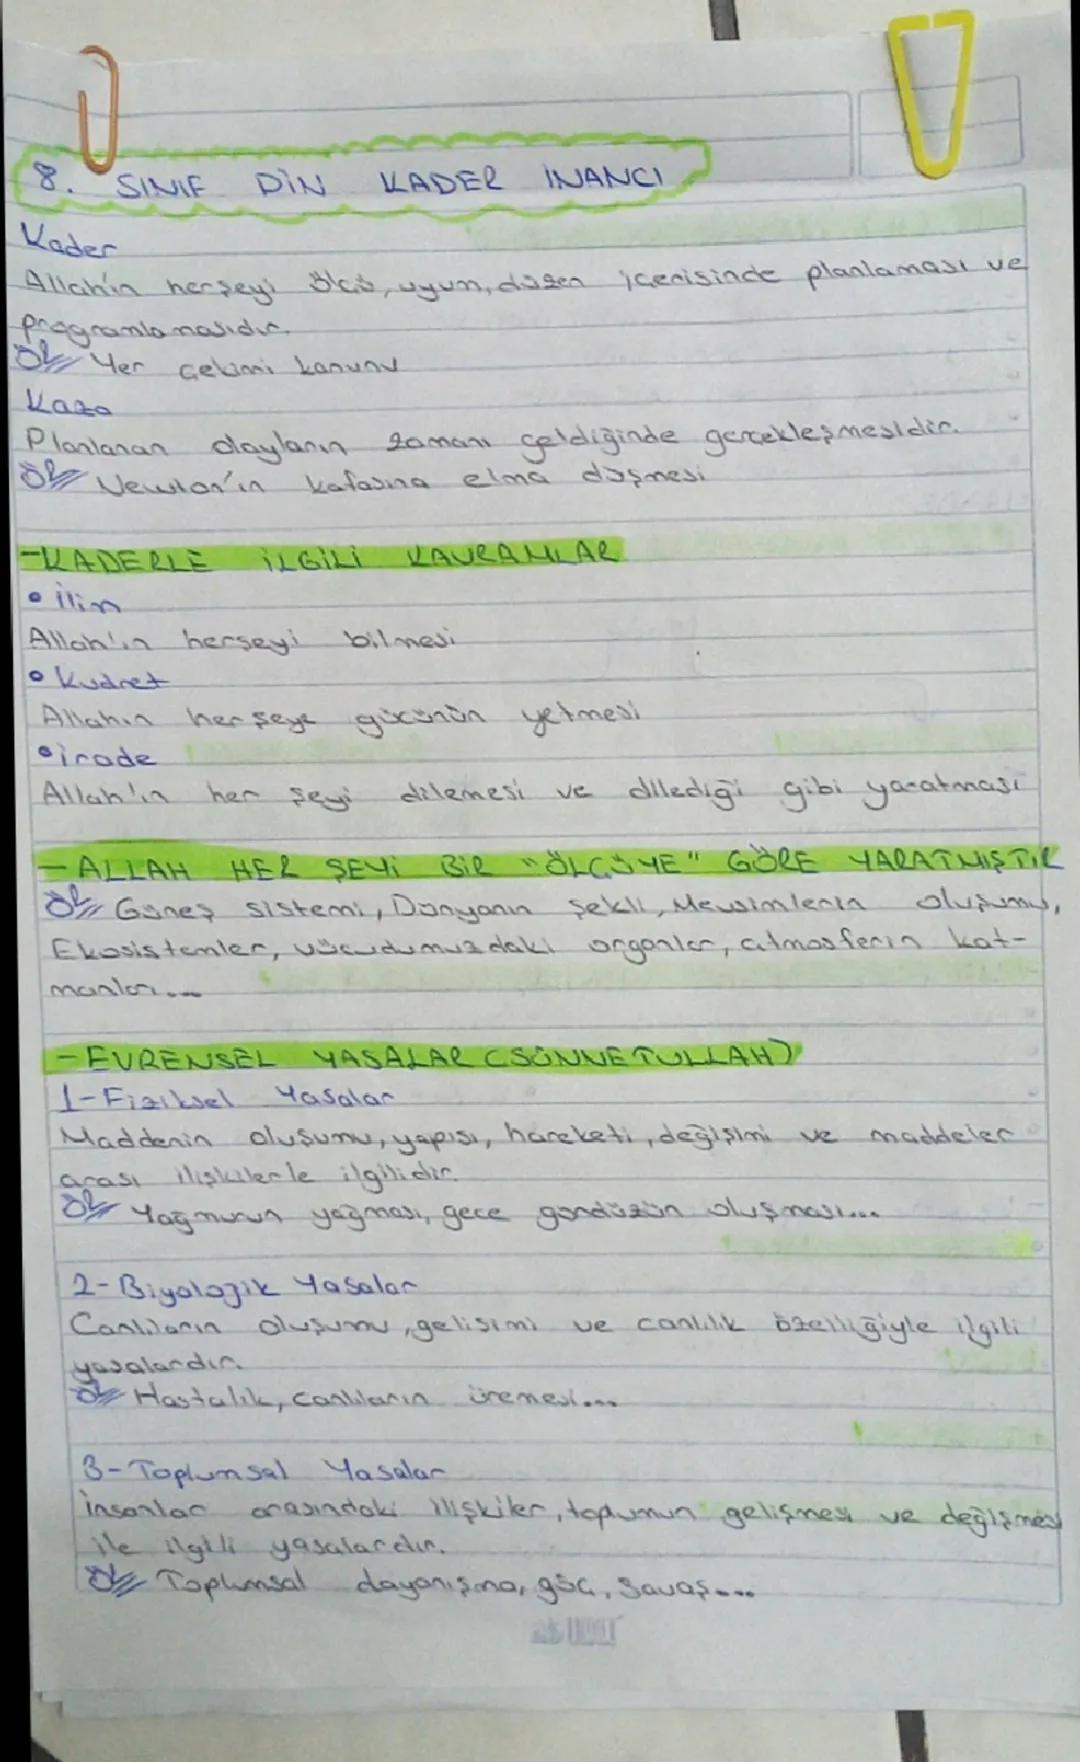 8. SINIF DİN KADER İNANCI
Kader
Allah'ın herşeyi ölçü, uyum, düzen içerisinde planlaması ve
programlamasıdır.
Ör/ Yer çekimi kanunu
Kaza
Planlanan olayların zamanı geldiğinde gerçekleşmesidir.
Ör/ Newton'ın kafasına elma düşmesi
-KADERLE İLGİLİ KAVRAMLAR
• İlim
Allah'ın herşeyi bilmesi
• Kudret
Allahın her şeye gücünün yetmesi
• irade
Allah'ın her şeyi dilemesi ve dilediği gibi yaratması
- ALLAH HER ŞEYİ BİR "ÖLÇÜYE" GÖRE YARATMIŞTIR
Ör/ Güneş sistemi, Dünyanın şekli, Mevsimlerin oluşumu,
Ekosistemler, vücudumuzdaki organlar, atmosferin kat-
manları...
- EVRENSEL YASALAR (SÜNNETULLAH)
1-Fiziksel Yasalar
Maddenin oluşumu, yapısı, hareketi, değişimi ve maddeler
arası ilişkilerle ilgilidir.
Ör/ Yağmurun yağması, gece gündüzün oluşması...
2-Biyolojik Yasalar
Canlıların oluşumu, gelişimi ve canlılık özelliğiyle ilgili
yasalardır.
Ör/ Hastalık, canlıların üremesi...
3-Toplumsal Yasalar
İnsanlar arasındaki ilişkiler, toplumun gelişmesi ve değişmesi
ile ilgili yasalardır.
Ör/ Toplumsal dayanışma, göç, Savaş...